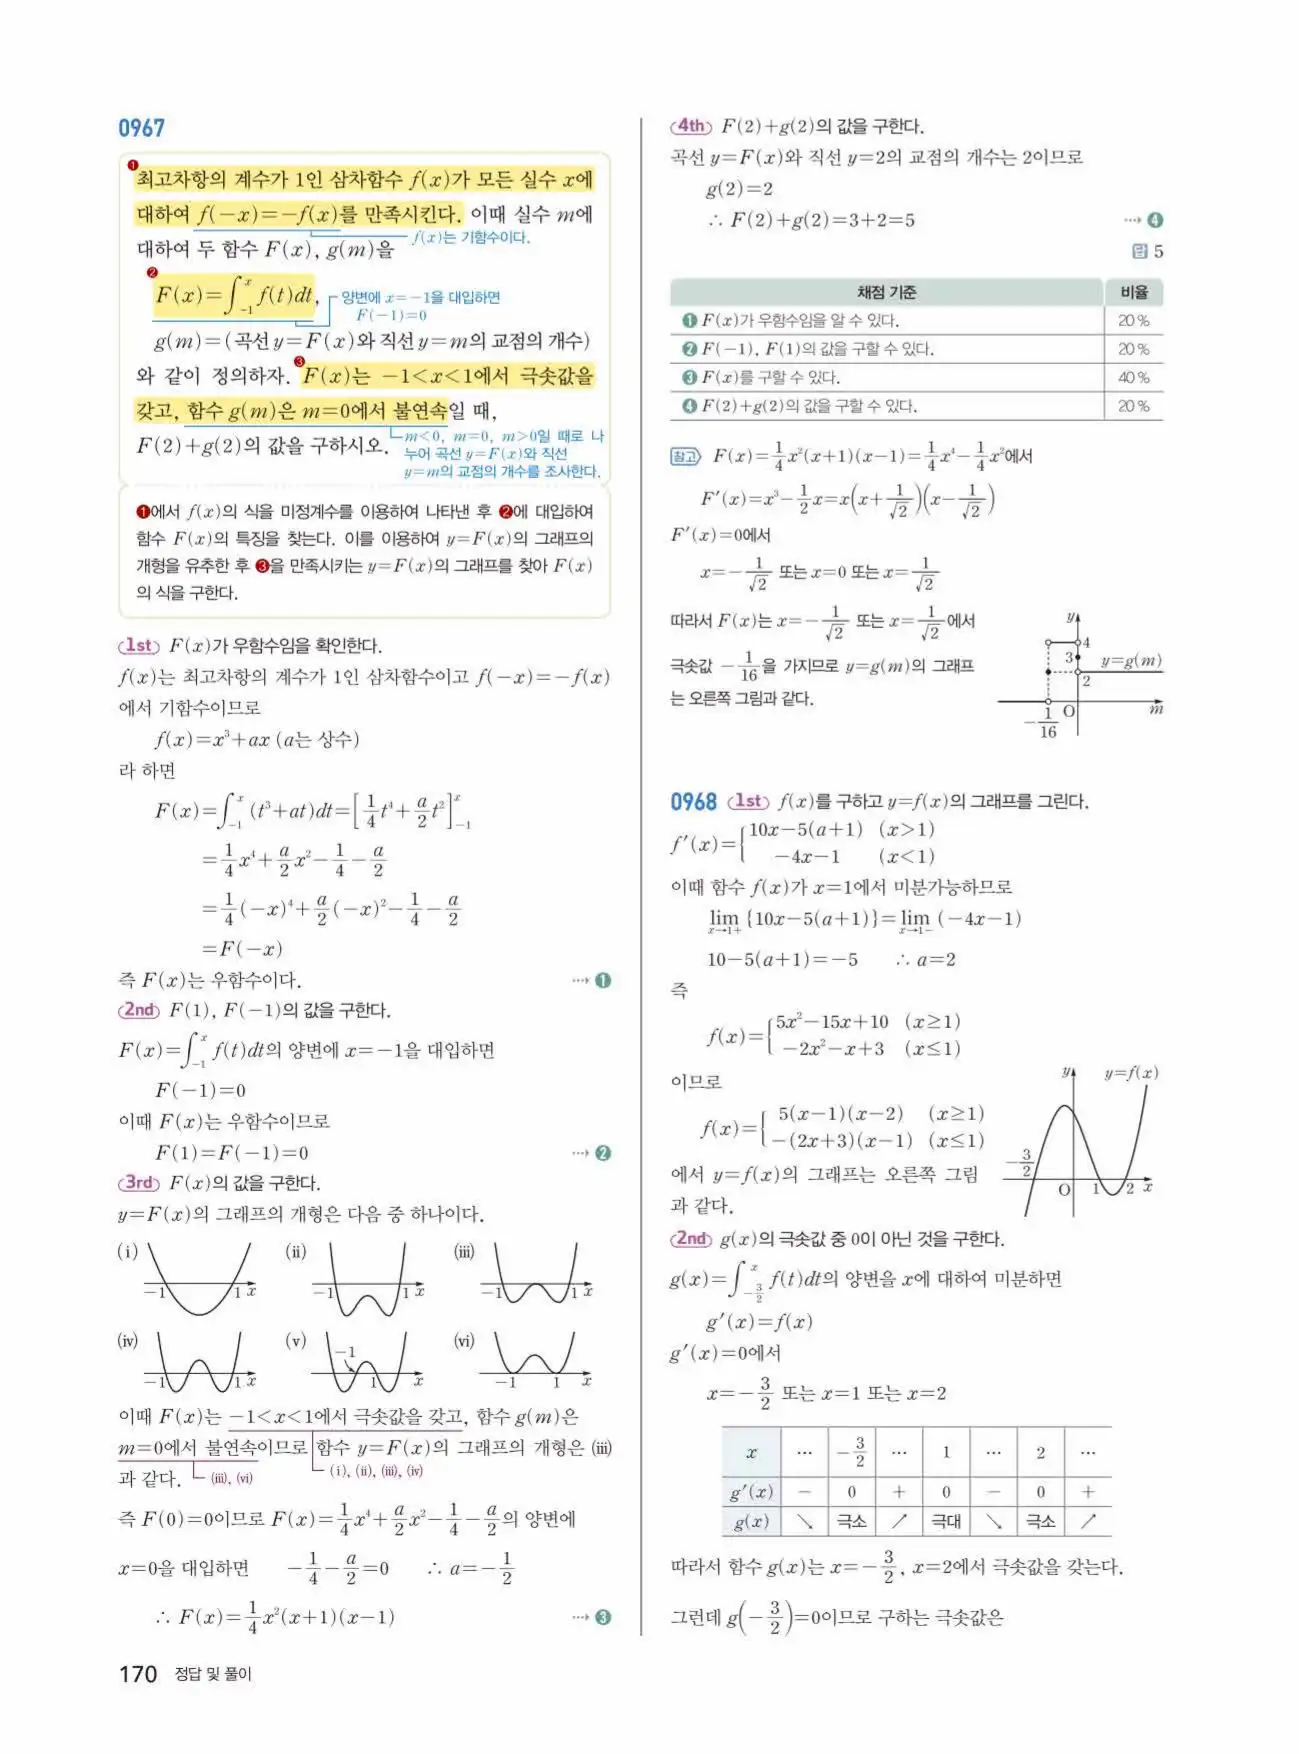 0967
❶ 최고차항의 계수가 1인 삼차함수 f(x)가 모든 실수 x에
대하여 f(-x)=-f(x)를 만족시킨다. 이때 실수 m에
f(x)는 기함수이다.
대하여 두 함수 F(x), g(m)을
❷ F(x)=∫_{-1}^{x} f(t)dt,
양변에 x=-1을 대입하면
F(-1)=0
g(m)=(곡선 y=F(x)와 직선 y=m의 교점의 개수)
와 같이 정의하자. ❸ F(x)는 -1<x<1에서 극솟값을
갖고, 함수 g(m)은 m=0에서 불연속일 때,
F(2)+g(2)의 값을 구하시오.
m<0, m=0, m>0일 때로 나
누어 곡선 y=F(x)와 직선
y=m의 교점의 개수를 조사한다.
❶에서 f(x)의 식을 미정계수를 이용하여 나타낸 후 ❷에 대입하여
함수 F(x)의 특징을 찾는다. 이를 이용하여 y=F(x)의 그래프의
개형을 유추한 후 ❸을 만족시키는 y=F(x)의 그래프를 찾아 F(x)
의 식을 구한다.
1st F(x)가 우함수임을 확인한다.
f(x)는 최고차항의 계수가 1인 삼차함수이고 f(-x)=-f(x)
에서 기함수이므로
f(x)=x³+ax (a는 상수)
라 하면
F(x)=∫_{-1}^{x} (t³+at)dt=[1/4 t⁴+a/2 t²]_{-1}^{x}
=1/4 x⁴+a/2 x²-1/4-a/2
=1/4(-x)⁴+a/2(-x)²-1/4-a/2
=F(-x)
즉 F(x)는 우함수이다. ···→ ❶
2nd F(1), F(-1)의 값을 구한다.
F(x)=∫_{-1}^{x} f(t)dt의 양변에 x=-1을 대입하면
F(-1)=0
이때 F(x)는 우함수이므로
F(1)=F(-1)=0 ···→ ❷
3rd F(x)의 값을 구한다.
y=F(x)의 그래프의 개형은 다음 중 하나이다.
(ⅰ) -1 1 x
(ⅱ) -1 1 x
(ⅲ) -1 1 x
(ⅳ) -1 1 x
(ⅴ) -1 1 x
(ⅵ) -1 1 x
이때 F(x)는 -1<x<1에서 극솟값을 갖고, 함수 g(m)은
m=0에서 불연속이므로 함수 y=F(x)의 그래프의 개형은 (ⅲ)
과 같다. (ⅲ), (ⅵ) (ⅰ), (ⅱ), (ⅲ), (ⅳ)
즉 F(0)=0이므로 F(x)=1/4 x⁴+a/2 x²-1/4-a/2의 양변에
x=0을 대입하면 -1/4-a/2=0 ∴ a=-1/2
∴ F(x)=1/4 x²(x+1)(x-1) ···→ ❸
170 정답 및 풀이
4th F(2)+g(2)의 값을 구한다.
곡선 y=F(x)와 직선 y=2의 교점의 개수는 2이므로
g(2)=2
∴ F(2)+g(2)=3+2=5 ···→ ❹
답 5
채점 기준 비율
❶ F(x)가 우함수임을 알 수 있다. 20 %
❷ F(-1), F(1)의 값을 구할 수 있다. 20 %
❸ F(x)를 구할 수 있다. 40 %
❹ F(2)+g(2)의 값을 구할 수 있다. 20 %
참고 F(x)=1/4 x²(x+1)(x-1)=1/4 x⁴-1/4 x²에서
F′(x)=x³-1/2 x=x(x+1/√2)(x-1/√2)
F′(x)=0에서
x=-1/√2 또는 x=0 또는 x=1/√2
따라서 F(x)는 x=-1/√2 또는 x=1/√2에서
극솟값 -1/16을 가지므로 y=g(m)의 그래프
는 오른쪽 그림과 같다.
y
4
3 y=g(m)
2
-1/16 O m
0968 1st f(x)를 구하고 y=f(x)의 그래프를 그린다.
f′(x)={10x-5(a+1) (x>1)
-4x-1 (x<1)
이때 함수 f(x)가 x=1에서 미분가능하므로
lim_{x→1+} {10x-5(a+1)}=lim_{x→1-} (-4x-1)
10-5(a+1)=-5 ∴ a=2
즉
f(x)={5x²-15x+10 (x≥1)
-2x²-x+3 (x≤1)
이므로
f(x)={5(x-1)(x-2) (x≥1)
-(2x+3)(x-1) (x≤1)
에서 y=f(x)의 그래프는 오른쪽 그림
과 같다.
y y=f(x)
-3/2
O 1 2 x
2nd g(x)의 극솟값 중 0이 아닌 것을 구한다.
g(x)=∫_{-3/2}^{x} f(t)dt의 양변을 x에 대하여 미분하면
g′(x)=f(x)
g′(x)=0에서
x=-3/2 또는 x=1 또는 x=2
x ··· -3/2 ··· 1 ··· 2 ···
g′(x) - 0 + 0 - 0 +
g(x) ↘ 극소 ↗ 극대 ↘ 극소 ↗
따라서 함수 g(x)는 x=-3/2, x=2에서 극솟값을 갖는다.
그런데 g(-3/2)=0이므로 구하는 극솟값은